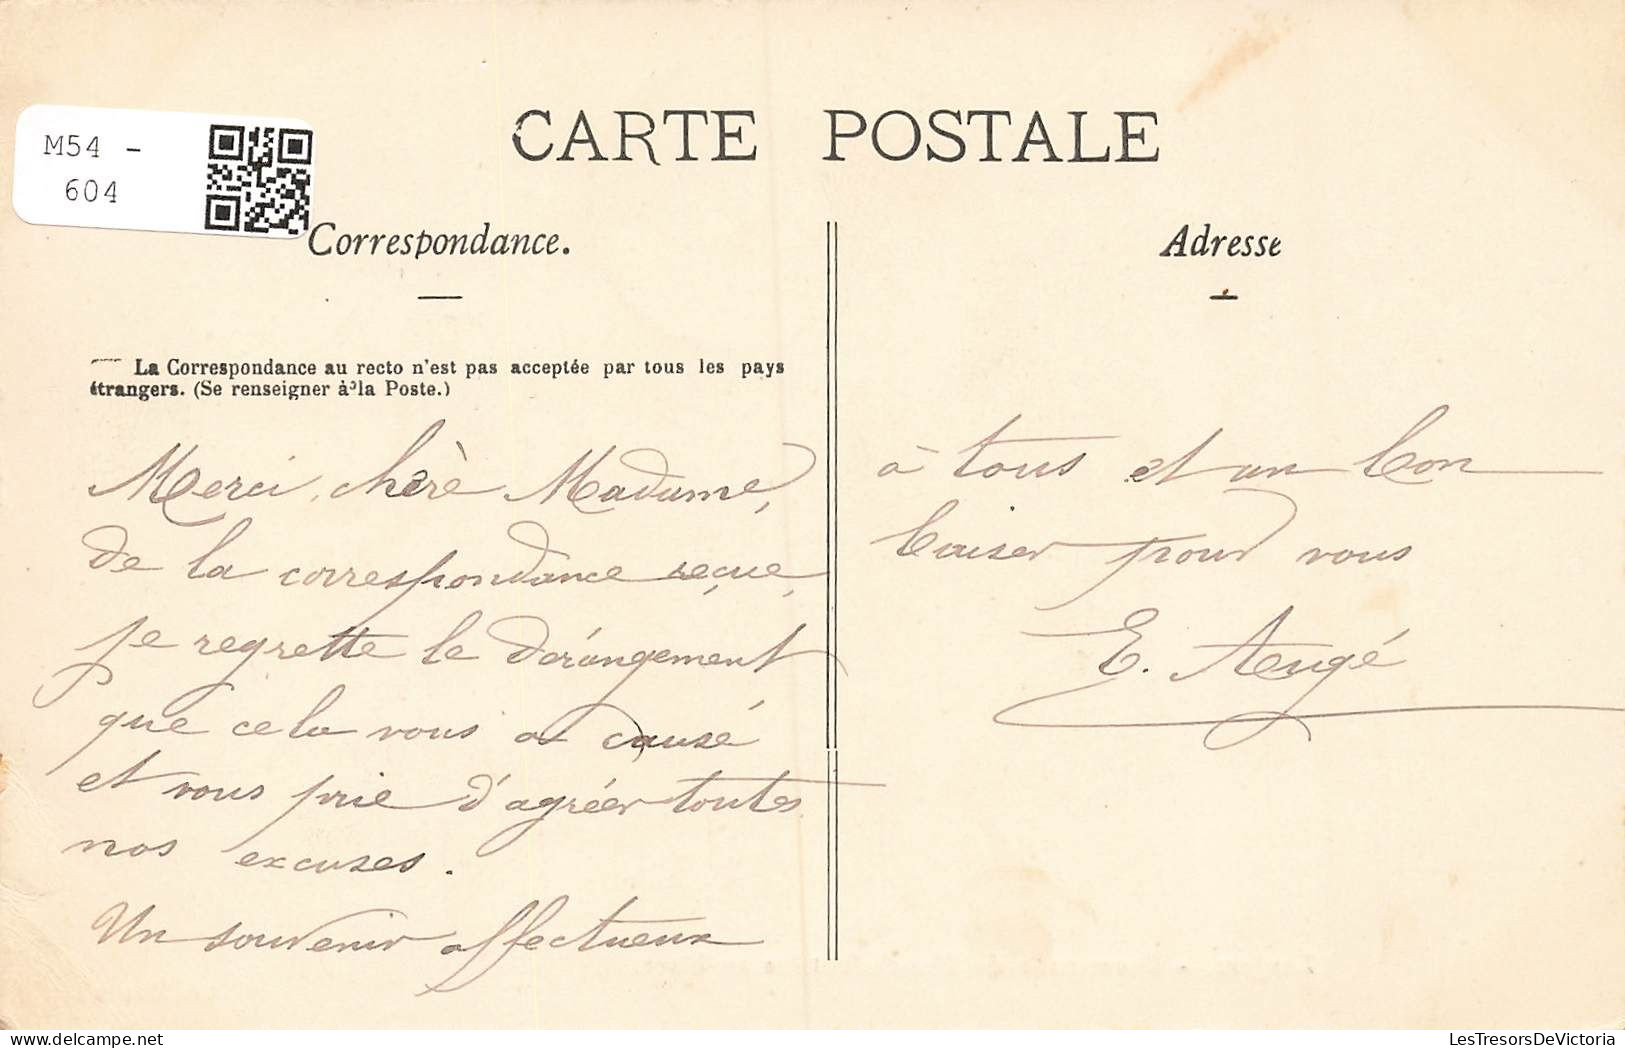 M54 -
604
CARTE POSTALE
Correspondance.
Adresse
La Correspondance au recto n'est pas acceptée par tous les pays
étrangers. (Se renseigner à la Poste.)
Merci, chère Madame,
de la correspondance reçue,
je regrette le dérangement
que cela vous a causé
et vous prie d'agréer toutes
nos excuses.
Un souvenir affectueux
à tous et un bon
baiser pour vous
E. Augé
LesTresorsDeVictoria